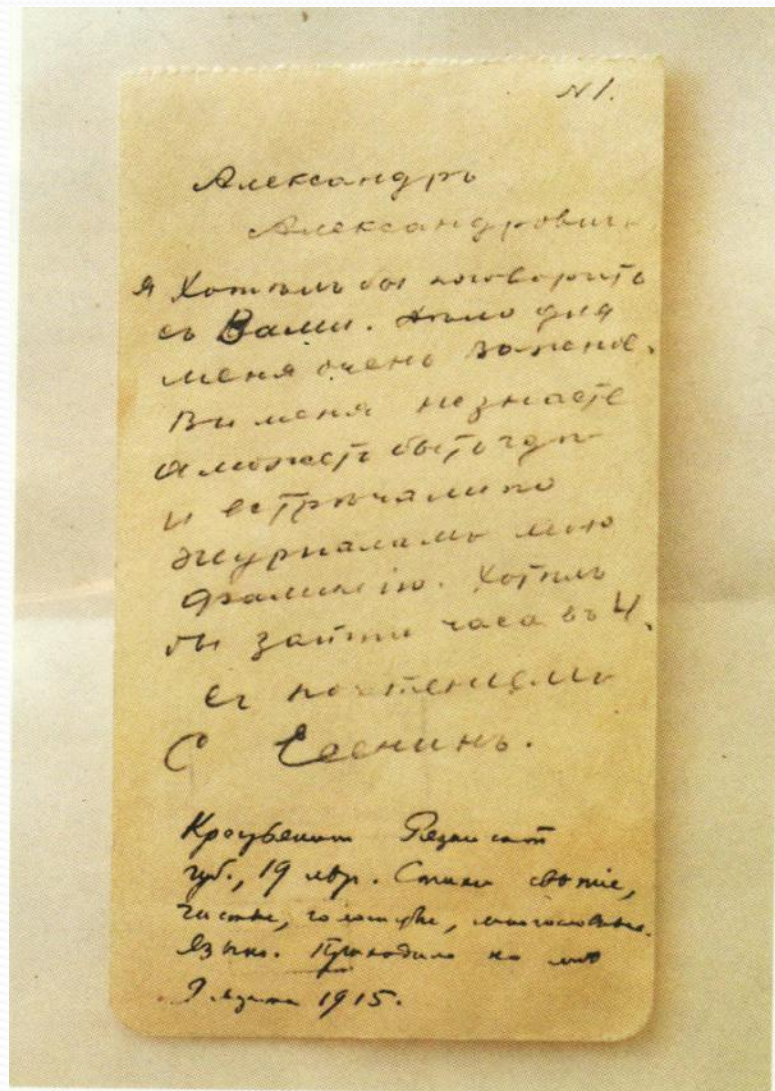 N 1.
Александръ
Александровичъ
Я Хотѣлъ бы поговорить
съ Вами. Дѣло для
меня очень важное.
Вы меня не знаете
а можетъ быть гдѣ
и встрѣчали по
журналамъ мою
фамилію. Хотѣлъ
бы зайти часа въ 4.
Съ почтениемъ
С Есенинъ.
Крестьянин Рязанской
губ., 19 лет. Стихи свежие,
чистые, голосистые, многословные.
Язык. Приходил ко мне
9 марта 1915.